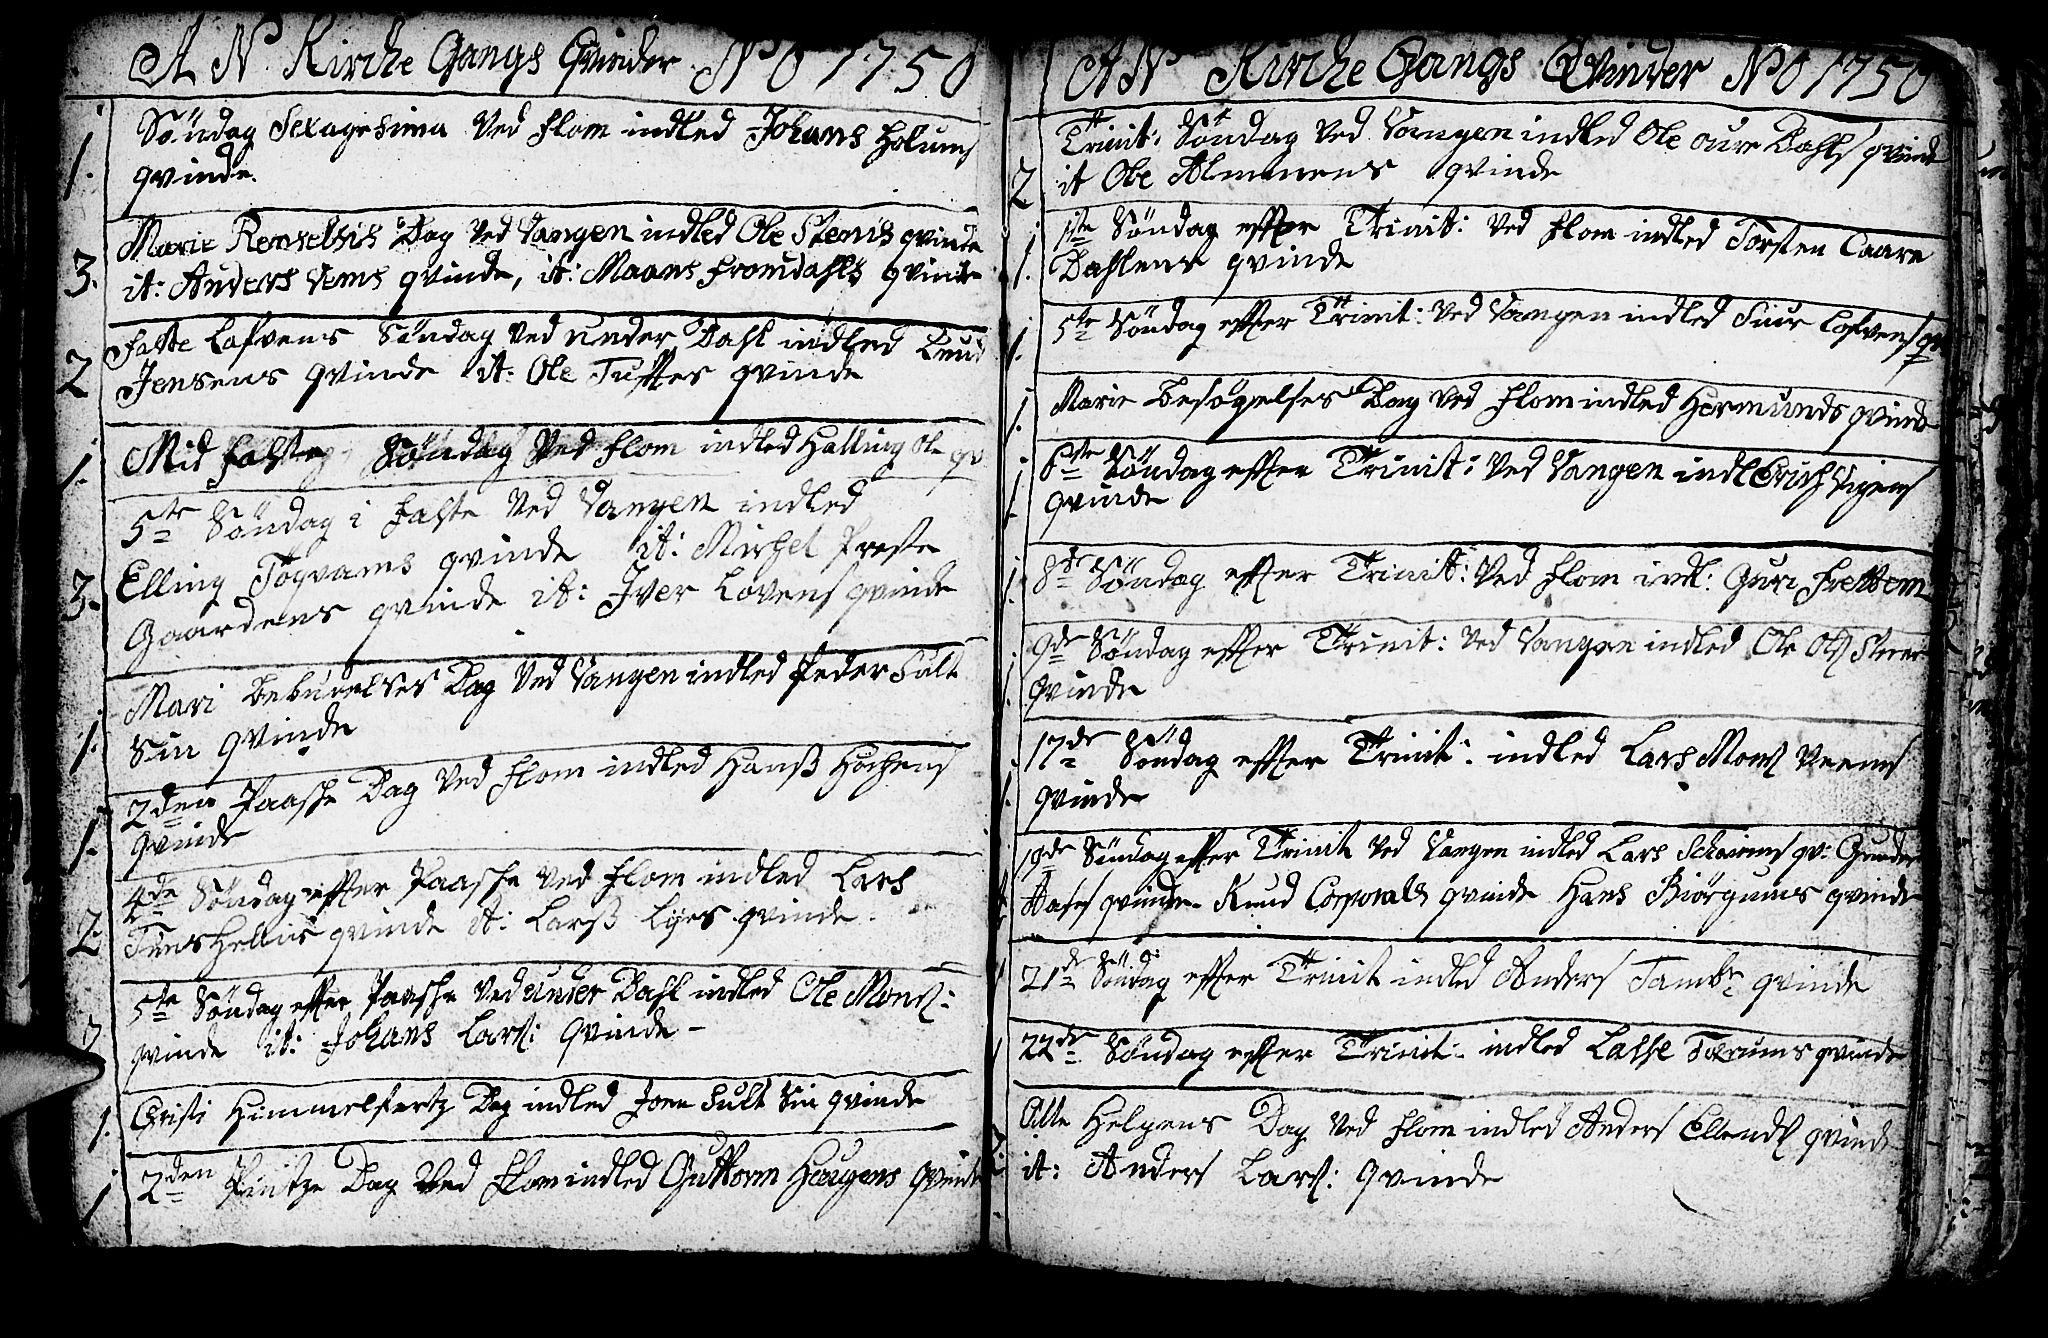 AN Kirche Gangs Qvinder No 1750
1. Søndag Sexagesima Ved Flom indled Johans Holums
qvinde.
Marie Renselsis Dag Ved Vangen indled Ole Stenis qvinde
3. it: Anders Vems qvinde, it: Maans Fromdahls qvinde
Faste Lafvens Søndag Ved under Dahl indled
2 Jensens qvinde it: Ole Tufftes qvinde
1. Mid Faste Søndag Ved Flom indled Halling Ole qv
5te Søndag i Faste Ved Vangen indled
Elling Togvams qvinde it: Michel Preste
3. Gaardens qvinde it: Iver Lovens qvinde
Mari Bebudelses Dag Ved Vangen indled Peder Sult
1. Sin qvinde
2den Paasche Dag Ved Flom indled Hanß Hochens
1. qvinde
4de Søndag effter Paasche Ved Flom indled Lars
2. qvinde it: Larß Lies qvinde
5te Søndag effter Paasche Ved under Dahl indled Ole Mons:
2 qvinde it: Johans Lars: qvinde
1. Christi Himmelfartz Dag indled Joen Sult Sin qvinde
1 2den Pintze Dag Ved Flom indled Guttorm Haugens qvinde
AN Kirche Gangs Qvinder No 1750
Trinit: Søndag Ved Vangen indled Ole oure Dahls qvinde
2 it Ole Almmens qvinde
1ste Søndag effter Trinit: Ved Flom indled Torsten Caare
1. Dahlens qvinde
1. 5te Søndag effter Trinit: Ved Vangen indled Siur Lofvens qv
1. Marie Besøgelses Dag Ved Flom indled Hermunds qvinde
6te Søndag effter Trinit: Ved Vangen indl Erich Vigens
1. qvinde
1. 8de Søndag effter Trinit: Ved Flom indl: Guri Frettem
9de Søndag effter Trinit: Ved Vangen indled Ole Ols
1. qvinde
17de Søndag effter Trinit: indled Lars Mons Veems
1. qvinde
19de Søndag effter Trinit Ved Vangen indled Lars qv: Gunder
qvinde Knud Corporals qvinde Hans Biørgums qvinde
1 21de Søndag effter Trinit indled Anders Tambr qvinde
1 22de Søndag effter Trinit: indled Lasse qvinde
Alle Helgens Dag Ved Flom indled Anders Ellends qvinde
2. it: Anders Lars: qvinde